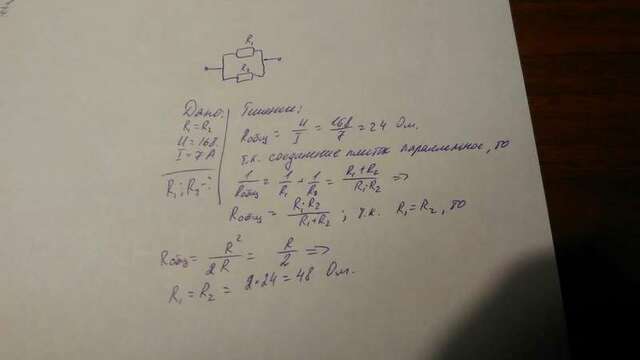 R₁
R₂
Дано:
R₁=R₂
U=168
I=7A
R₁;R₂-?
Решение:
Rобщ = U/I = 168/7 = 24 Ом.
т.к. соединение плиток параллельное, то
1/Rобщ = 1/R₁ + 1/R₂ = R₁+R₂/R₁·R₂ =>
Rобщ = R₁·R₂/R₁+R₂ ; т.к. R₁=R₂, то
Rобщ = R²/2R = R/2 =>
R₁=R₂ = 2·24=48 Ом.